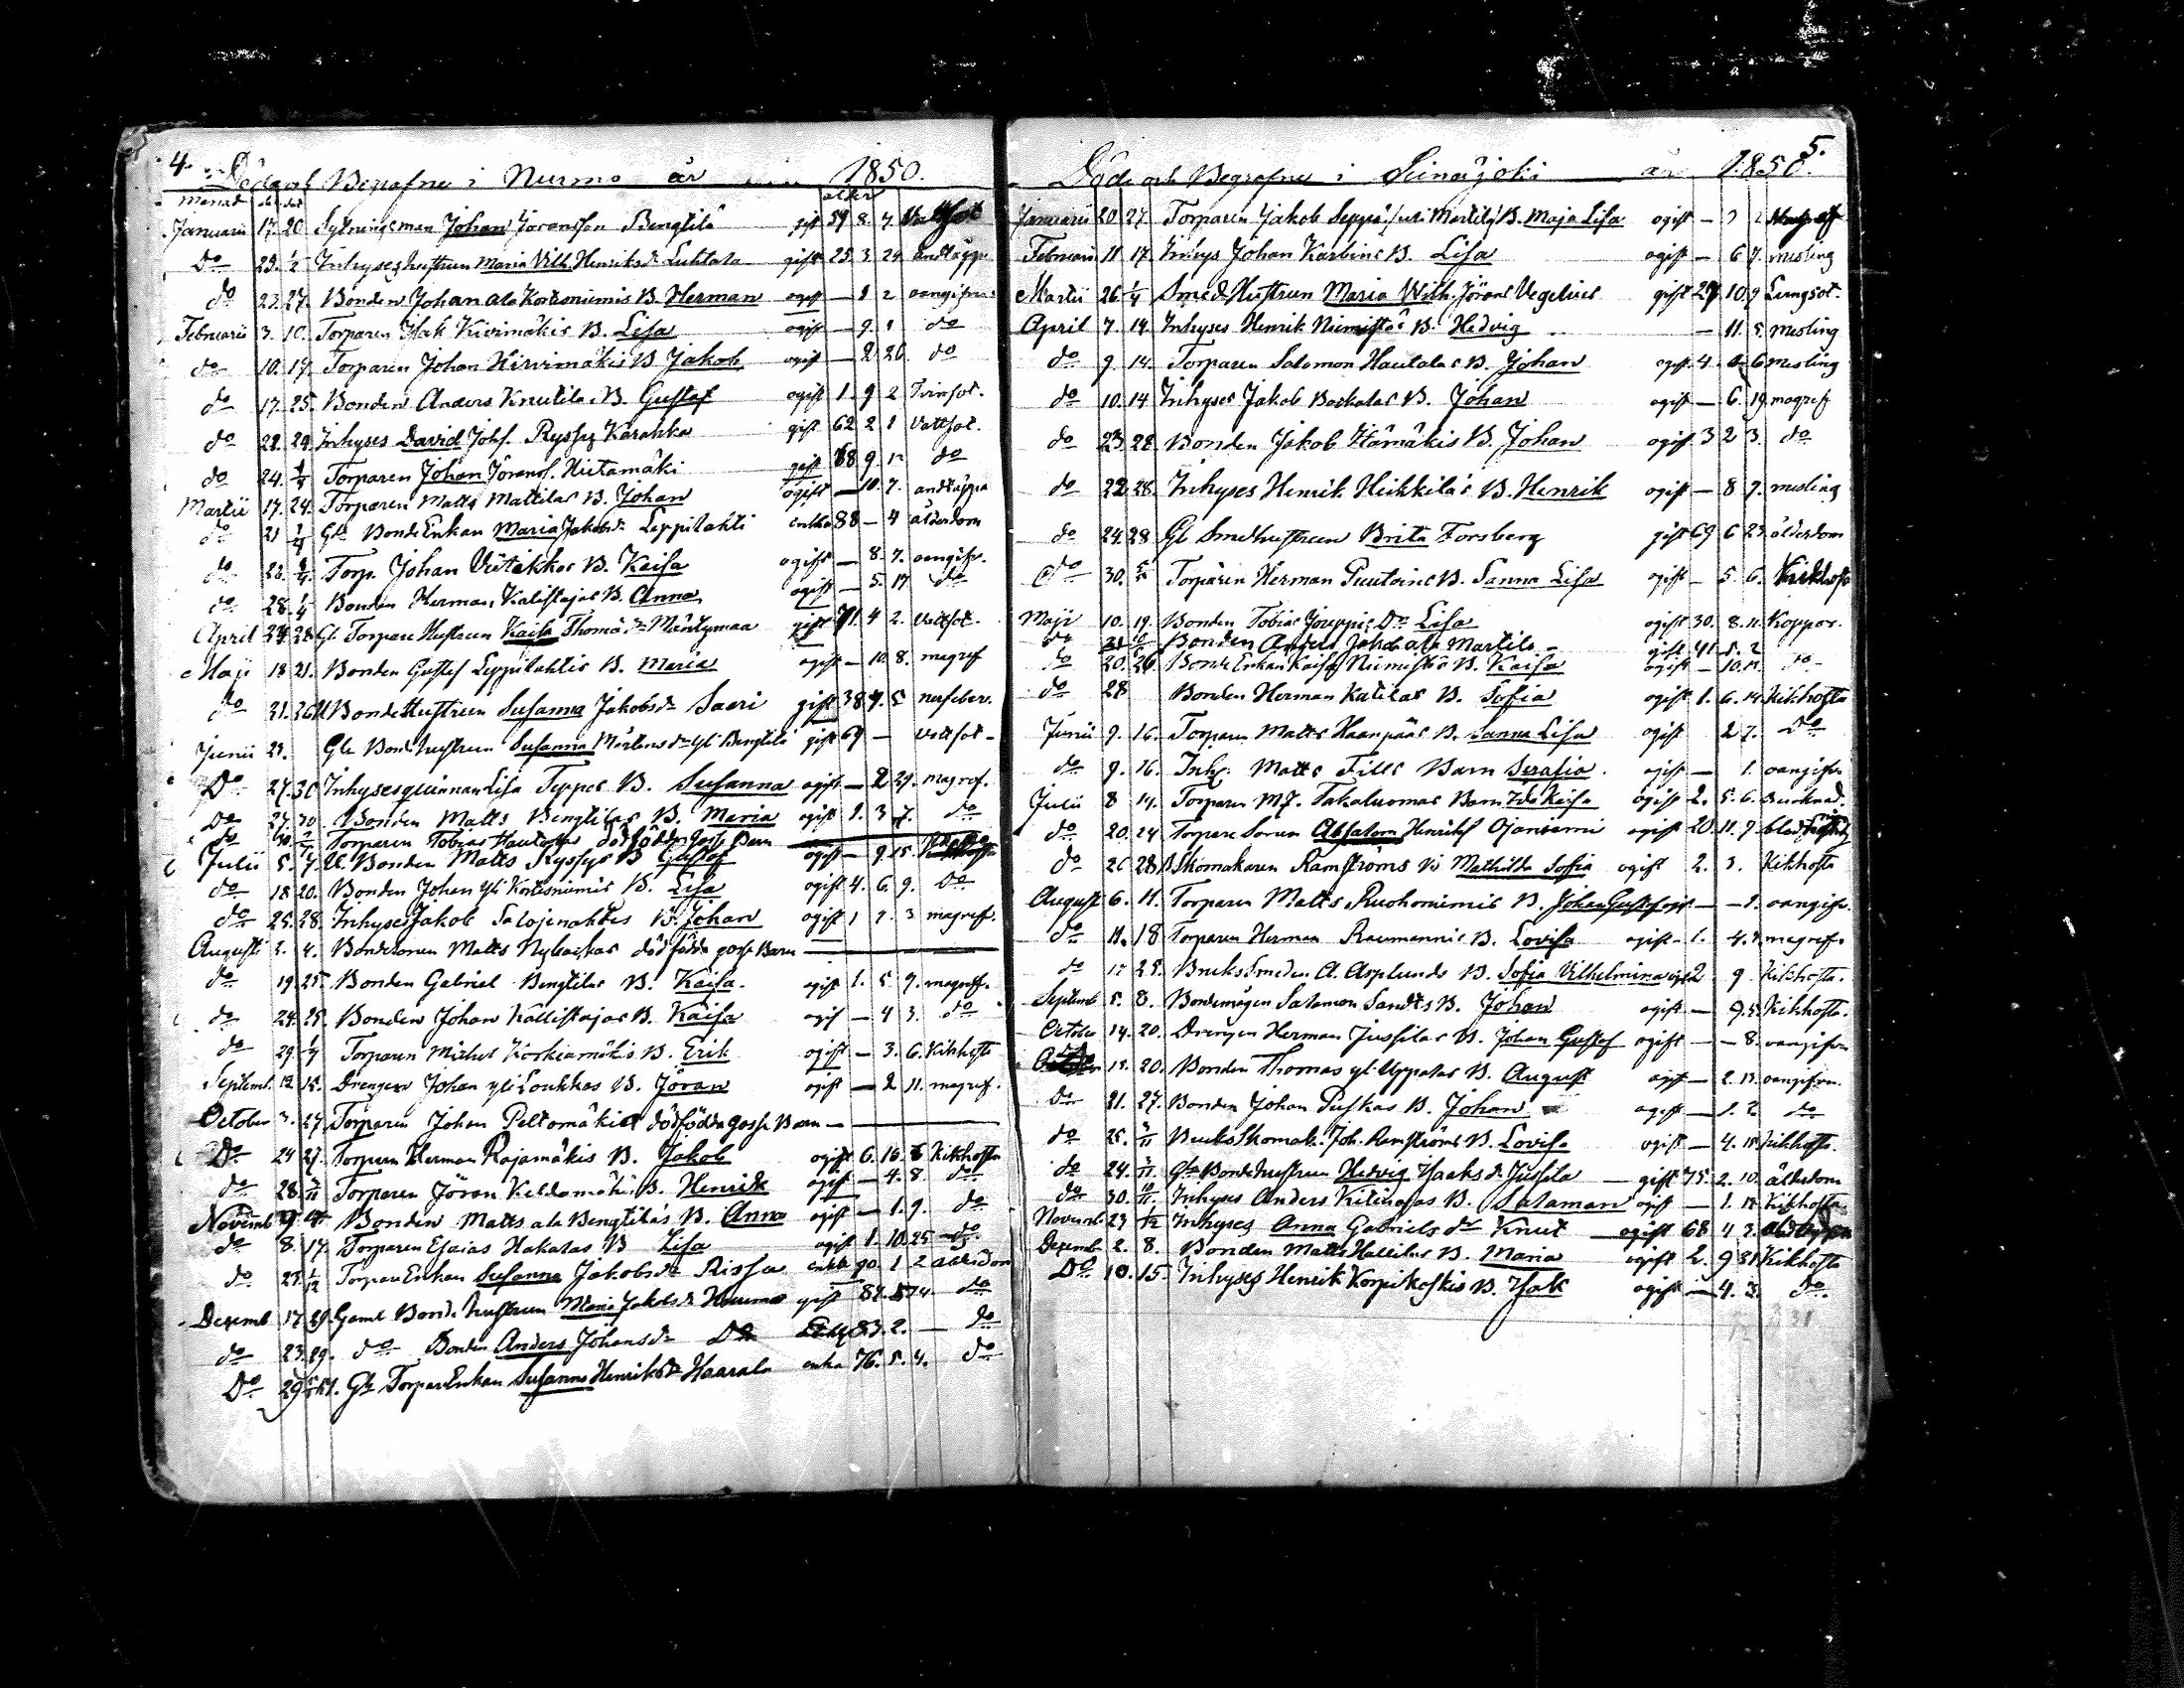 4. Döde och Begrafne i Nurmo år 1850.
månad ålder
Januarii 17. 20. Sytningsman Johan Jöransson Bengtilä gift 59 8. 7. Vattsot
Do 23. 1/2 Inhyses hustrun Maria Vilh. Henriksdr Luhtala gift 23 3 24. andtäppa
do 23. 27. Bonden Johan ala Kortesniemis B. Herman ogift — 1 2 oangifven
Februarii 3. 10. Torparen Isak Kivimäkis B. Lisa ogift — 9. 1 do
do 10. 17. Torparen Johan Hirvimäkis B. Jakob ogift — 2 26. do
do 17. 25. Bonden Anders Knutilas B. Gustaf ogift 1. 9 2 Tvinsot.
do 22. 24. Inhyses David Johs. Ryssy Karahka gift 62 2 1 Vattsot.
do 24. Torparen Johan Jöranss. Hiitamäki gift 68 9 do
Martii 17. 24. Torparen Matts Mattilas B. Johan ogift — 10. 7. andtäppa
do 21 1/4 Gla BondeEnkan Maria Jakobsdr Leppilahti enka 88 — 4 ålderdom
do 23. 1/4 Torp. Johan Viitikkos B. Kaisa ogift — 8. 7. oangifv.
do 28. 1/4 Bonden Herman Kalistajas B. Anna ogift — 5. 17 do
April 24. 28. Gl. Torpare Hustrun Kaisa Thomædr Mäntymaa gift 71. 4 2. Vattsot.
Maji 18 21. Bonden Gustaf Leppilahtis B. Maria ogift — 10. 8. magref
do 21. 26. BondeHustrun Susanna Jakobsdr Saari gift 38 7. 5
Junii 23. Gla Bondehustrun Susanna Mårtensdr yli Bengtilä gift 69 — Vattsot
Do 27. 30 Inhysesqvinnan Lisa Teppos B. Susanna ogift — 2 29. magref.
Do 27. 30. Bonden Matts Bengtilas B. Maria ogift 1. 3 7. do
do 30. Torparen Tobias Hautalas dödfödda Gosse Barn
Julii 5. 7. Bonden Matts Ryssys B Gustaf ogift — 9. 15.
do 18 20. Bonden Johan yli Kortesniemis B. Lisa ogift 4. 6. 9. Do
do 25. 28. Inhyses Jakob Salojenahtes B. Johan ogift 1 7. 3 magref.
Augusti 3. 4. Bondesonen Matts Nybackas dödfödda gosse Barn
do 19. 25. Bonden Gabriel Bengtilas B. Kaisa ogift 1. 5. 9. magref.
do 24. 25. Bonden Johan Kallistajas B. Kaisa ogif — 4 3. do
do 29. Torparen Michel Koskiamäkis B. Erik ogift — 3. 6. Kikhosta
Septemb. 12 15. Drengen Johan yli Loukkos B. Jöran ogift — 2 11. magref.
October 3. 27. Torparen Johan Peltomäkis dödfödda gosse Barn
Do 24 27. Torparen Herman Rajamäkis B. Jakob ogift 6. 16. 6 Kikhosta
do 28. 3/11 Torparen Jöran Keldamäkis B. Henrik ogift — 4. 8. do
Novemb Bonden Matts ala Bengtiläs B. Anna ogift — 1. 9. do
do 8. 17. Torparen Esaias Hakalas B Lisa ogift 1. 10. 25 do
do 23. 1/12 TorpareEnkan Susanna Jakobsdr Rissa enka 90. 1 2 ålderdom
Decemb 17. 29. Gaml. Bondehustrun Maria Jakobsdr gift 82. do
do 23. 29. do Bonden Anders Johans Do 83. 2. — do
Do 29 Gla TorpareEnkan Susanna Henriksdr Haarala enka 76. 5. 4. do
5.
Döde och Begrafne i Seinäjoki år 1850.
Januarii 20 27. Torparen Jakob Seppä B. Maja Lisa ogift —
Februarii 11 17. Inhys Johan Karbins B. Lisa ogift — 6 7. mesling
Martii 26 1/4 Smed Hustrun Maria Wilh. Jörans Vegelius gift 27 10 9 Lungsot.
April 7. 14. Inhyses Henrik Niemistös B. Hedvig — 11. 5. mesling
do 9. 14. Torparen Salomon Hautalas B. Johan ogift 4. 6 mesling
do 10. 14 Inhyses Jakob Backalas B. Johan ogift — 6. 19. magref
do 23 28 Bonden Jakob Itämäkis B. Johan ogift 3 2 3. do
do 22 28. Inhyses Henrik Heikkiläs B. Henrik ogift — 8 7. mesling
do 24. 28 Gl. Smedhustrun Brita Forsberg gift 69 6 23. ålderdom
do 30. Torparen Herman Puutoins B. Sanna Lisa ogift — 5. 6. Kikhosta
Maji 10. 19. Bonden Tobias Jouppis Dr Lisa ogift 30. 8. 11. Koppor.
do Bonden Anders Jakobs ala Martila gift 41 5. 2
do 20. 26 BondeEnkan Kaisa Niemistös B. Kaisa ogift — 10. 11. do
do 28 Bonden Herman Katilas B. Sofia ogift 1. 6. 14. Kikhosta
Junii 9. 16. Torparen Matts Haanpääs B. Sanna Lisa ogift 2 7. Do
do 9. 16. Inh. Matts Fills Barn Serafia ogift — 1. oangifv.
Julii 8 14. Torparen M. J. Takaluomas Barn Ida Kaisa ogift 2. 5. 6.
do 20. 24 Torpare Sonen Absalom Henrikss Ojaniemi ogift 20 11. 9.
do 26 28 Skomakaren Ramströms B Mathilda Sofia ogift 2. 3. Kikhosta
August 6. 11. Torparen Matts Ruohoniemis B. Johan Gustaf ogift — — 1. oangifv.
do 11. 18 Torparen Herman Raumannis B. Lovisa ogift — 1. 4. magref.
do 17 25. BruksSmeden A. Asplunds B. Sofia Vilhelmina ogift 2 9. Kikhosta.
Septemb 5. 8. Bondemågen Salomon Sandts B. Johan ogift — 9. Kikhosta.
October 14. 20. Drengen Herman Jussilas B. Johan Gustaf ogift — — 8. oangifven
do 15. 20. Bonden Thomas yli Uppatas B. August ogift — 2. 13. oangifven.
Do 21. 27. Bonden Johan Puskas B. Johan ogift — 1. 2. do
do 25. 3/11 BruksSkomak. Joh. Ramströms B. Lovisa ogift — 4. 15 Kikhosta.
do 24. 3/11. Gla Bondehustrun Hedvig Isaksdr Jussila gift 75. 2. 10. ålderdom
do 30. 10/11. Inhyses Anders Kitinojas B. Salaman ogift — 1. 12. Kikhosta
Novemb. 23 1/12 Inhyses Anna Gabrielsdr Knut ogift 68 4 3.
Decemb. 2. 8. Bonden Matts Hallilas B. Maria ogift 2. 9 31 Kikhosta
Do 10. 15. Inhyses Henrik Korpikoskis B. Isak ogift — 4. 3. do